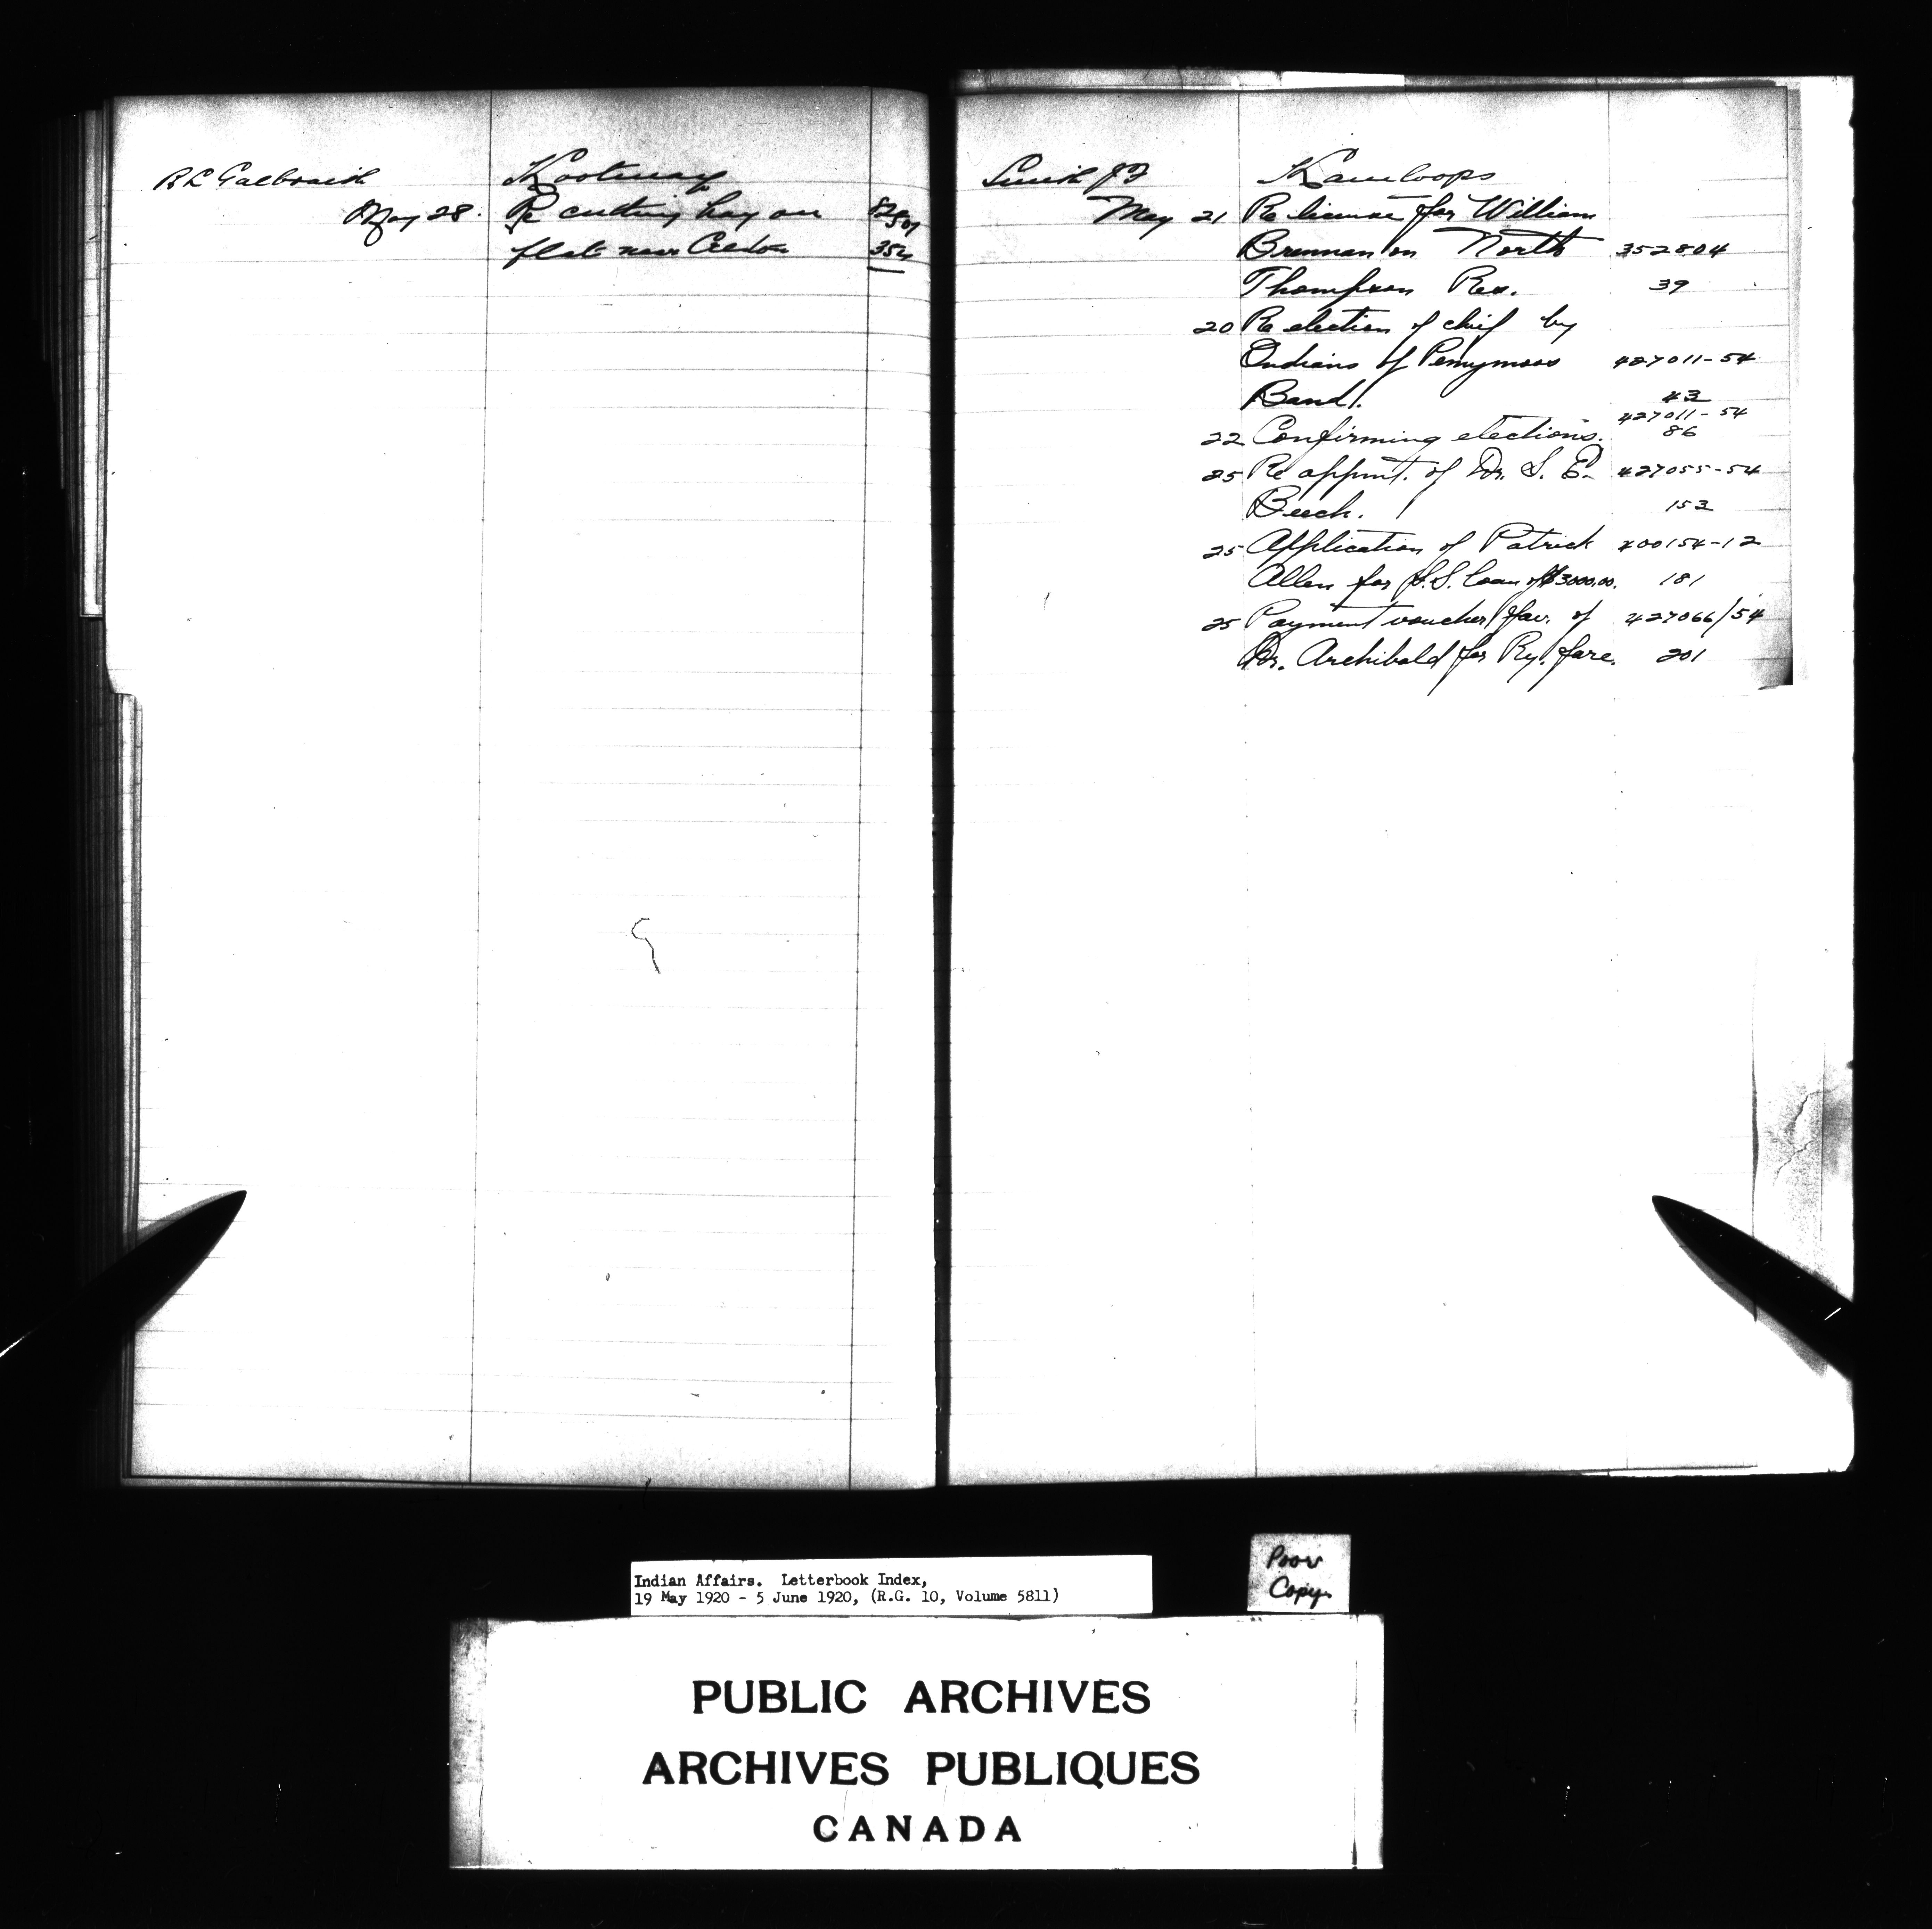 R L Galbraith Kootenay
May 28. Re cutting hay on
flats near Creston 354
Smith J F Kamloops
May 21 Re license for William
Brennan on North 352804
Thompson Res. 39
20 Re election of chief by
Indians of 427011-54
Band. 43
427011-54
22 Confirming elections. 86
25 Re appmt. of Dr. S. E. 427055-54
Beech. 153
25 Application of Patrick 400154-12
Allen for S.S. loan of $3000.00. 181
25 Payment voucher fav. of 427066/54
Dr. Archibald for Ry. fare. 201
Poor
Copy.
Indian Affairs. Letterbook Index,
19 May 1920 - 5 June 1920, (R.G. 10, Volume 5811)
PUBLIC ARCHIVES
ARCHIVES PUBLIQUES
CANADA